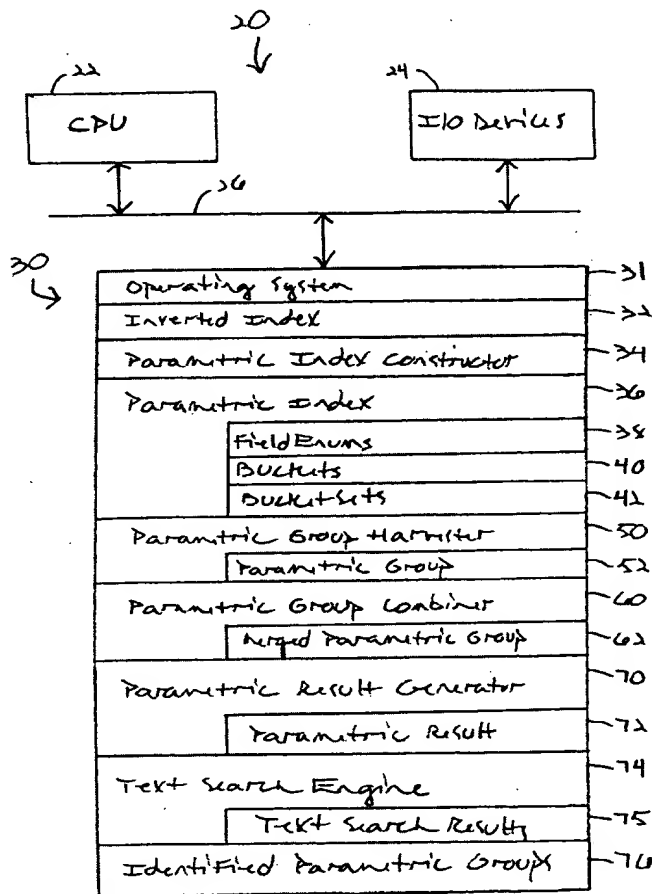 20
22
CPU
24
I/O Devices
26
30
Operating System 31
Inverted Index 32
Parametric Index Constructor 34
Parametric Index 36
FieldEnums 38
Buckets 40
BucketSets 42
Parametric Group Harvister 50
Parametric Group 52
Parametric Group Combiner 60
Merged Parametric Group 62
Parametric Result Generator 70
Parametric Result 72
Text Search Engine 74
Text Search Results 75
Identified Parametric Groups 76